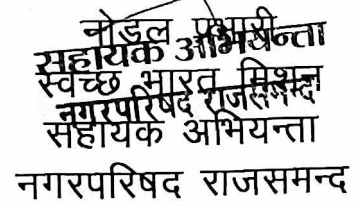 नोडल प्रभारी
सहायक अभियन्ता
स्वच्छ भारत मिशन
नगरपरिषद राजसमन्द
सहायक अभियन्ता
नगरपरिषद राजसमन्द